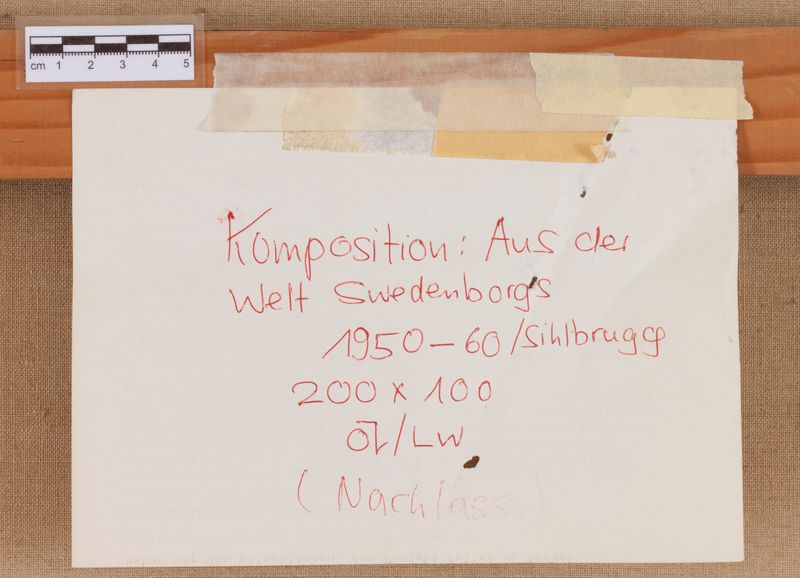 cm 1 2 3 4 5
Komposition: Aus der
Welt Swedenborgs
1950-60/Sihlbrugg
200 x 100
Öl/LW
(Nachlass)